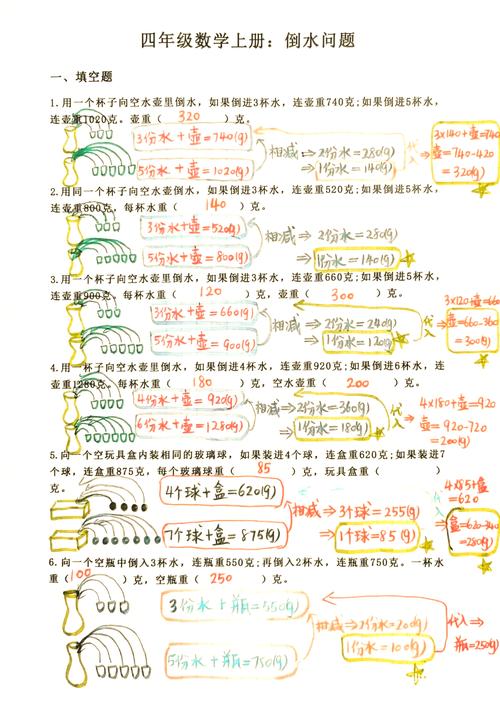 四年级数学上册：倒水问题
一、填空题
1.用一个杯子向空水壶里倒水，如果倒进3杯水，连壶重740克;如果倒进5杯水，
连壶重1020克。壶重（ 320 ）克。
3份水+壶=740(g)
5份水+壶=1020(g)
相减⇒2份水=280(g)
⇒1份水=140(g)
代入
3×140+壶=740
壶=740-420
=320(g)
2.用同一个杯子向空水壶倒水，如果倒进3杯水，连壶重520克;如果倒进5杯水，
连壶重800克，每杯水重（ 140 ）克。
3份水+壶=520(g)
5份水+壶=800(g)
相减⇒2份水=280(g)
⇒1份水=140(g)
3.用一个杯子向空水壶里倒水，如果倒进3杯水，连壶重660克;如果倒进5杯水，
连壶重900克，每杯水重（ 120 ）克，壶重（ 300 ）克。
3份水+壶=660(g)
5份水+壶=900(g)
相减⇒2份水=240(g)
⇒1份水=120(g)
代入
3×120+壶=660
壶=660-360
=300(g)
4.用一杯子向空水壶倒水，如果倒进4杯水，连壶重920克;如果倒进6杯水，连
壶重1280克。每杯水重（ 180 ）克，空水壶重（ 200 ）克。
4份水+壶=920(g)
6份水+壶=1280(g)
相减⇒2份水=360(g)
⇒1份水=180(g)
代入
4×180+壶=920
⇒壶=920-720
=200(g)
5.向一个空玩具盒内装相同的玻璃球，如果装进4个球，连盒重620克;如果装进7
个球，连盒重875克，每个玻璃球重（ 85 ）克，玩具盒重（ ）
克。
4个球+盒=620(g)
7个球+盒=875(g)
相减⇒3个球=255(g)
⇒1个球=85(g)
代入
4×85+盒
=620
盒=620-340
=280(g)
6.向一个空瓶中倒入3杯水，连瓶重550克;再倒入2杯水，连瓶重750克。一杯水
重（100 ）克，空瓶重（ 250 ）克。
3份水+瓶=550(g)
5份水+瓶=750(g)
相减⇒2份水=200(g)
1份水=100(g)
代入⇒
瓶=250(g)